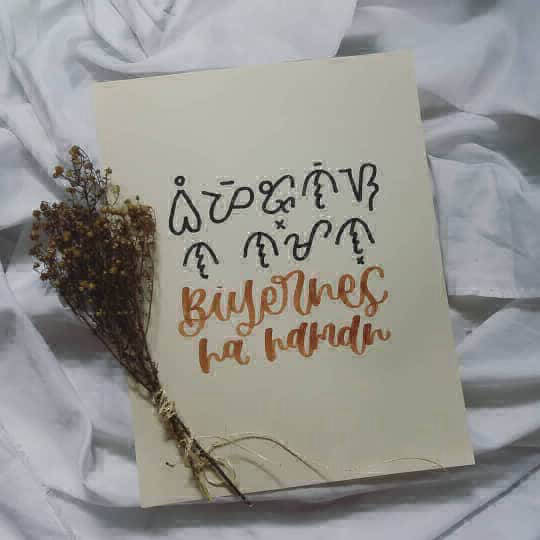 ᜊᜒᜌᜒᜍ᜔ᜈᜒᜐ
ᜈ ᜈᜋᜈ᜔
Biyernes
na naman